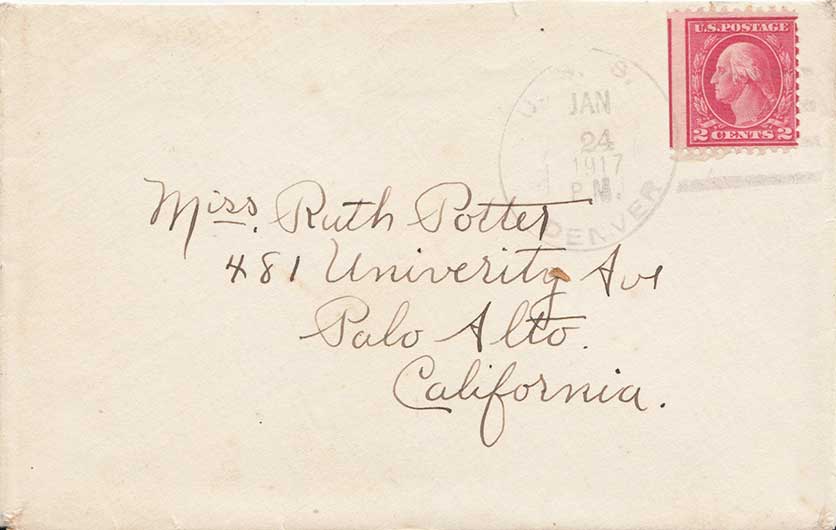 U.S. POSTAGE
2 CENTS 2
U. S. S.
JAN
24
1917
P.M.
DENVER
Miss. Ruth Potter
481 Univerity Ave
Palo Alto.
California.